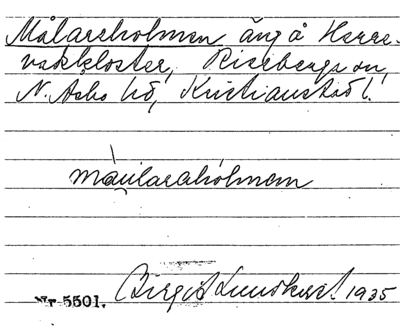 Målareholmen äng å Herre-
vadskloster, Riseberga sn,
N. Åsbo hd, Kristianstad l.
måųlaraholmem
Nr 5501. Birgit Lundkvist 1935